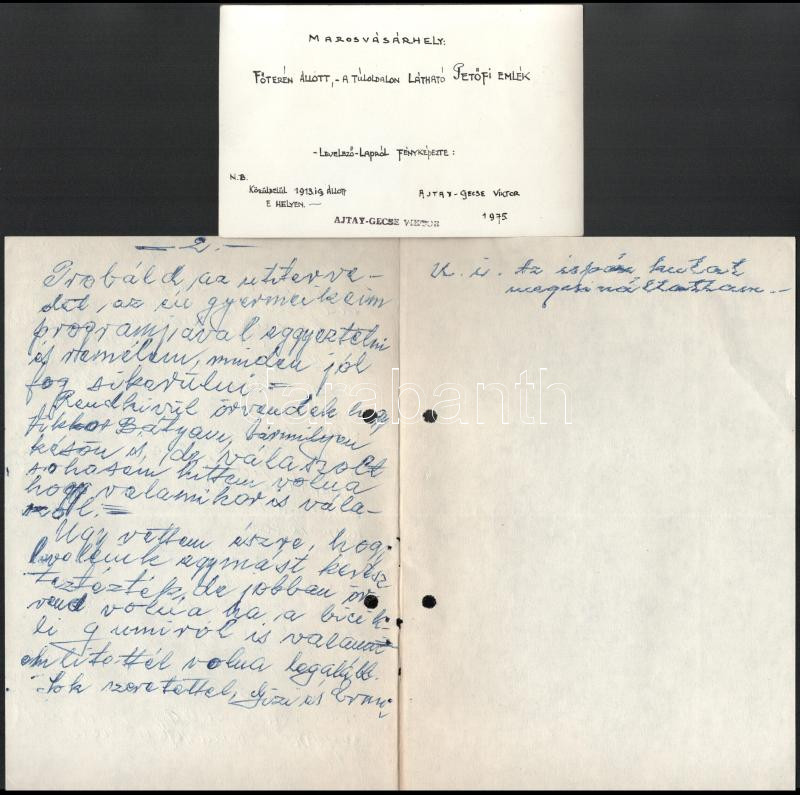 MAROSVÁSÁRHELY:
FŐTERÉN ÁLLOTT,- A TÚLOLDALON LÁTHATÓ PETŐFI EMLÉK
-LEVELEZŐ-LAPRÓL FÉNYKÉPEZTE:
N.B.
KÖZÜLBELÜL 1913.IG ÁLLOTT
E HELYEN.—
AJTAY-GECSE VIKTOR
1975
AJTAY-GECSE VIKTOR
— 2. —
Probáld, az utiterve-
det, az én gyermeikeim
programjával eggyeztetni
és remélem, minden jól
fog sikerülni =
Rendkivül örvendek hogy
Bátyám, bármilyen
későn is, de válaszolt
sohasem hittem volna
hogy valamikor is vála-
szol. =
Ugy vettem észre, hogy
levelünk egymást keresz
tezték, de jobban ör
vend volna ha, a bicik-
li gumiról is valamit
emlitettél volna legalább.
Sok szeretettel, Gizi és
U. i. Az ispán kutat
megcsináltattam.—
darabanth